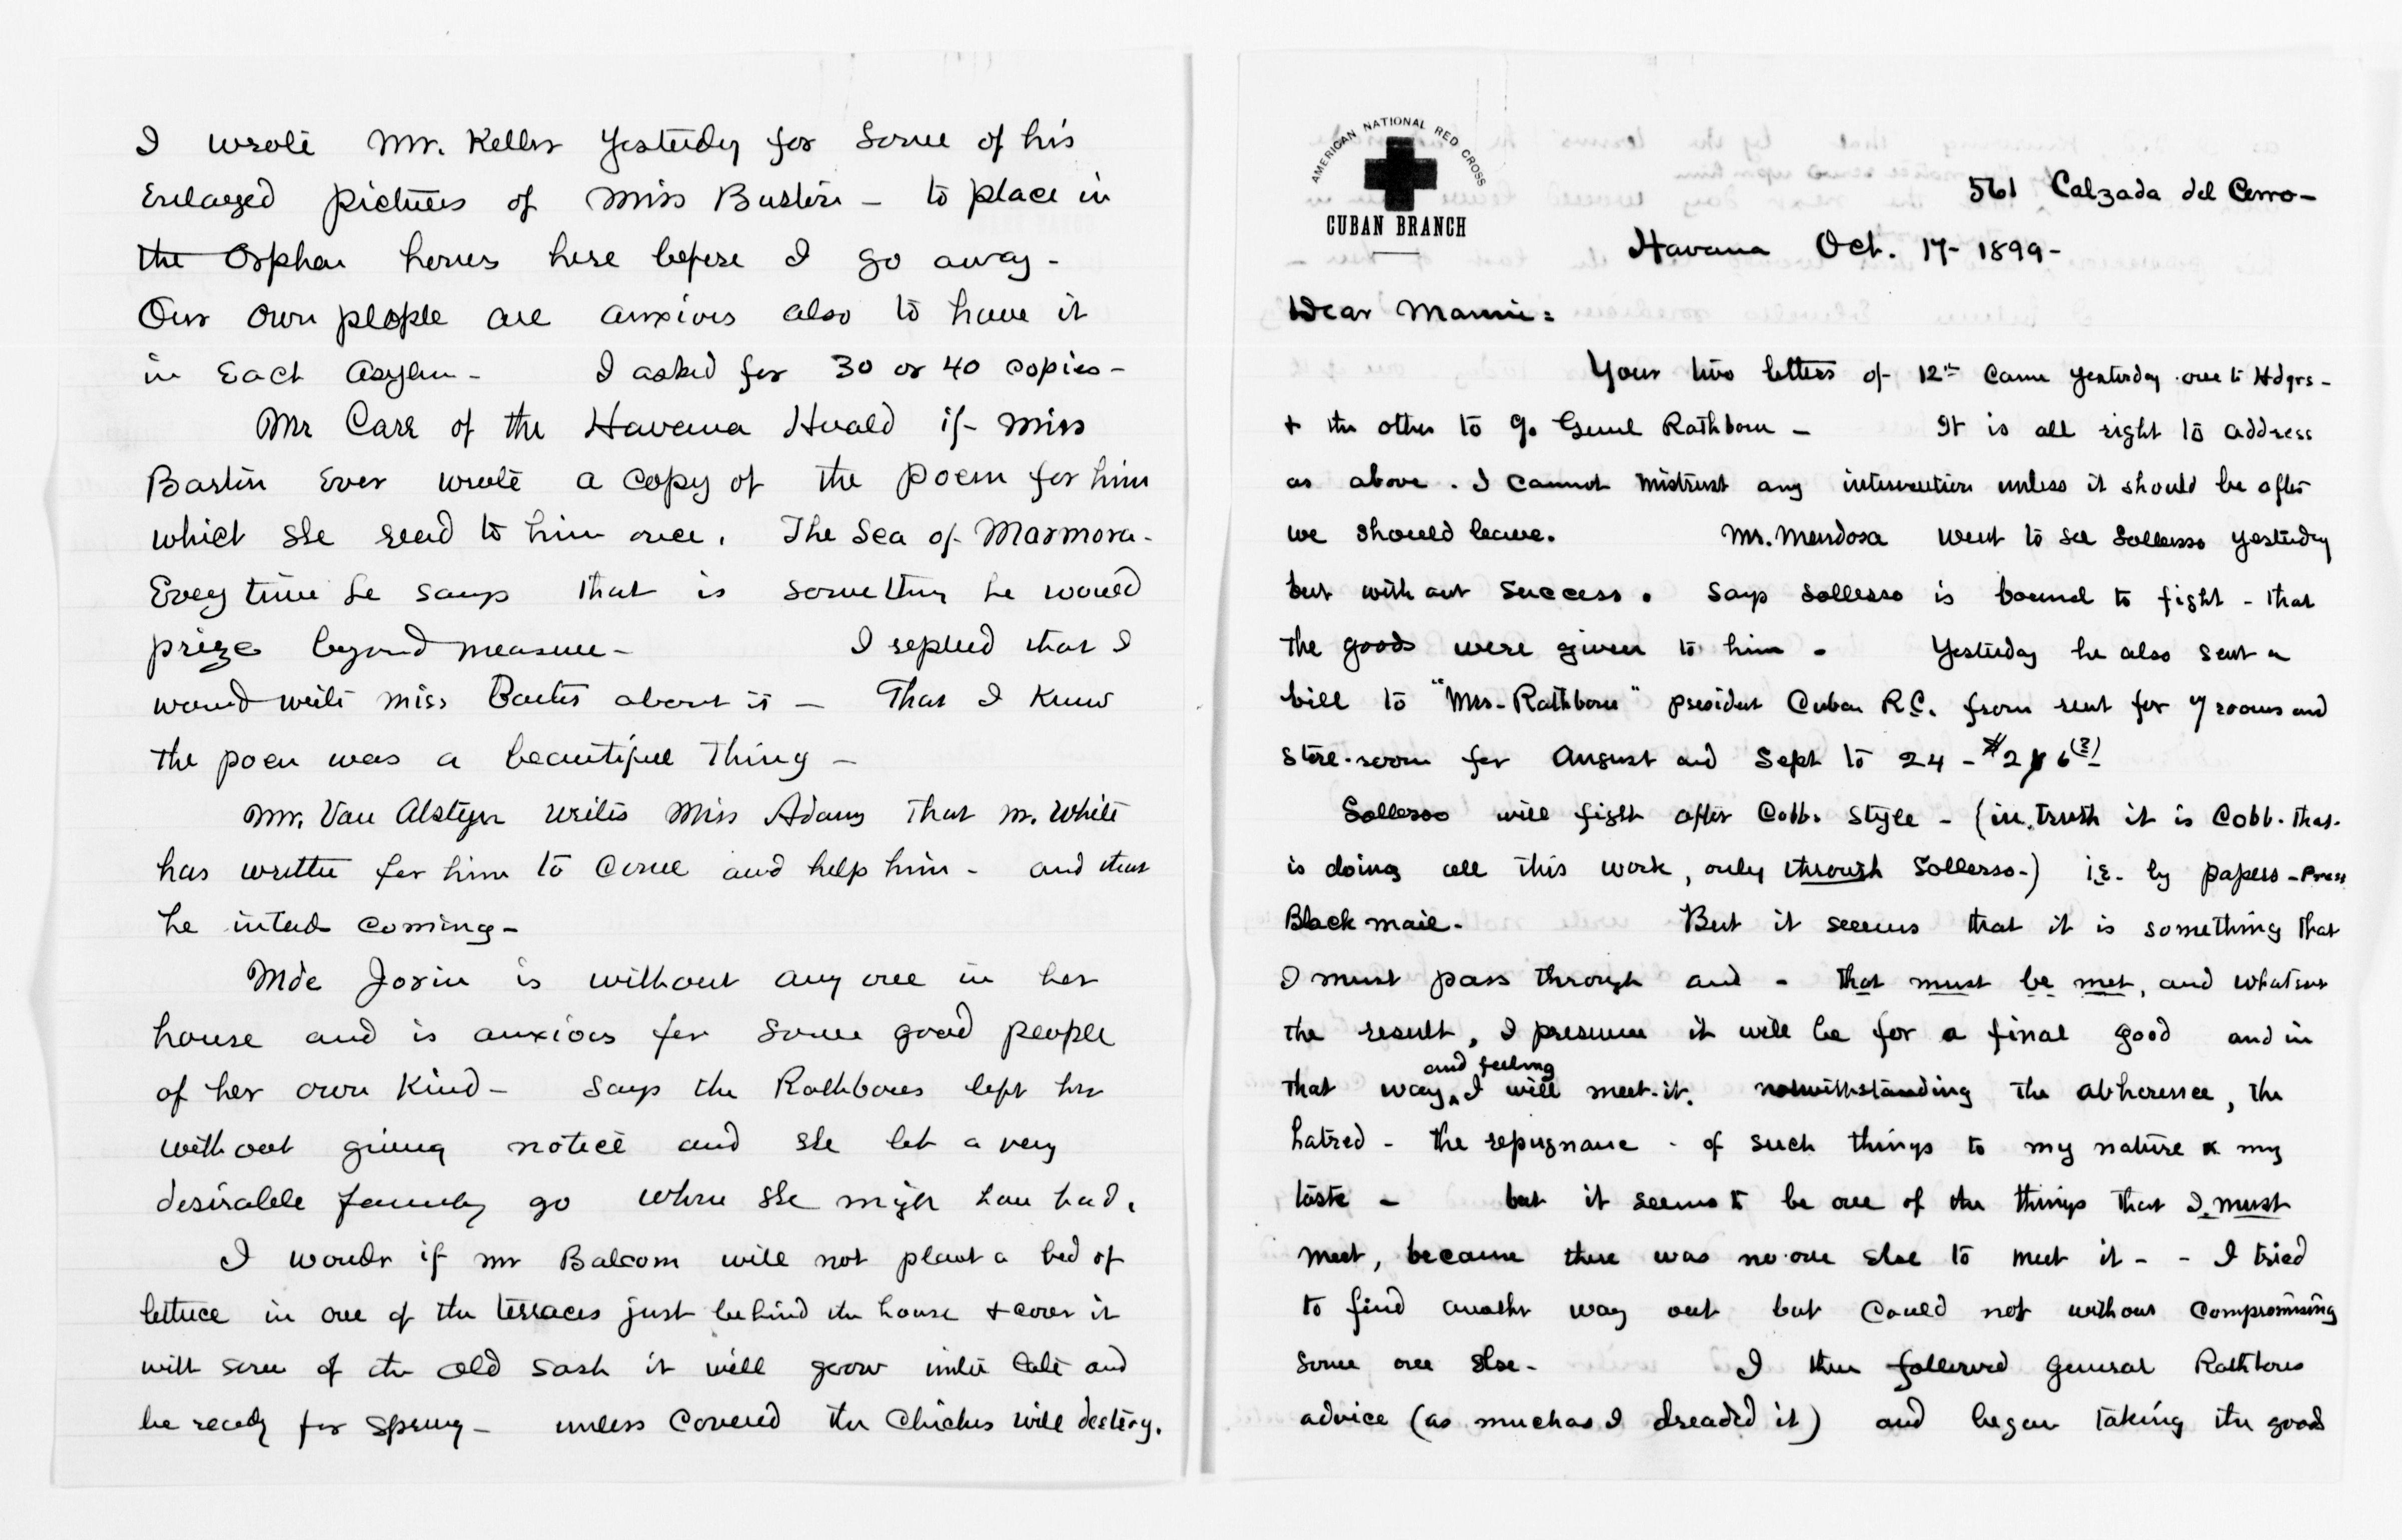 I wrote Mr. Keller yesterday for some of his
Enlarged pictures of Miss Barton – to place in
the Orphan homes here before I go away –
Our own people are anxious also to have it
in Each Asylum – I asked for 30 or 40 copies –
Mr Carr of the Havana Herald if Miss
Barton Ever wrote a copy of the poem for him
which she read to him once. The Sea of Marmora –
Every time he says that is something he would
prize beyond measure – I replied that I
would write Miss Barton about it – That I Knew
the poem was a beautiful Thing –
Mr. Van Alstyn writes Miss Adams that Mr. White
has written for him to come and help him – and that
he intends coming –
Mde Jorin is without any one in her
house and is anxious for some good people
of her own Kind – Says the Rathbones left her
without giving notice and she let a very
desirable family go whom she might have had.
I wonder if Mr Balcom will not plant a bed of
lettuce in one of the terraces just behind the house & cover it
with some of the old sash it will grow until late and
be ready for Spring – unless Covered the Chickens will destroy.
AMERICAN NATIONAL RED CROSS
CUBAN BRANCH
561 Calzada del Cerro –
Havana Oct. 17 – 1899 –
Dear Mamie:
Your two letters of 12th Came yesterday one to Hdqrs –
& the other to % Genl Rathbone – It is all right to address
as above. I cannot mistrust any intervention unless it should be after
we should leave. Mr. Mendosa went to see Sollosso yesterday
but with out Success. Says Sollosso is bound to fight – that
the goods were given to him – Yesterday he also sent a
bill to "Mrs. Rathbone" president Cuban R.C. from rent for 7 rooms and
store-room for August and Sept to 24 –
Sollosso will fight after Cobb. style – (in truth it is Cobb. that.
is doing all this work, only through Sollosso –) i.e. by papers – Press
Black mail – But it seems that it is something that
I must pass through and – that must be met, and whatever
the result, I presume it will be for a final good and in
and feeling
that way, I will meet it. notwithstanding the abhorence, the
hatred – the repugnance – of such things to my nature & my
taste – but it seems to be one of the things that I must
meet, because there was no one else to meet it – – I tried
to find another way out but could not without compromising
some one else – I then followed General Rathbones
advice (as much as I dreaded it) and began taking the goods